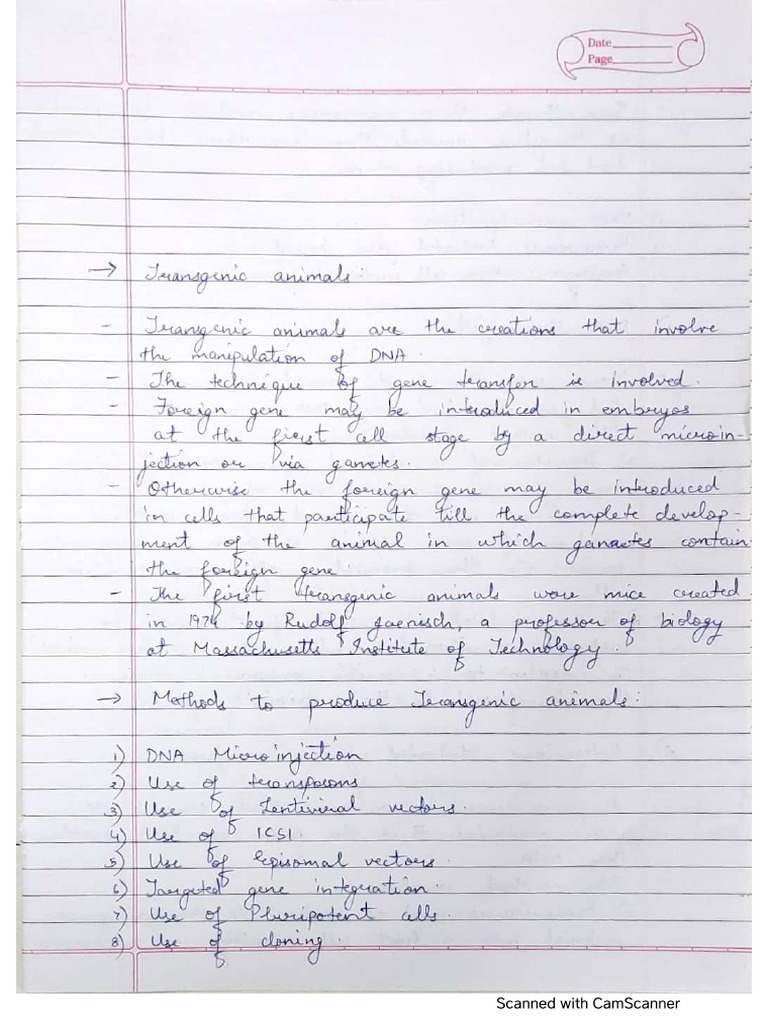 Date
Page
→ Transgenic animals:
- Transgenic animals are the creations that involve
the manipulation of DNA.
- The technique of gene transfer is involved.
- Foreign gene may be introduced in embryos
at the first cell stage by a direct microin-
jection or via gametes.
- Otherwise the foreign gene may be introduced
in cells that participate till the complete develop-
ment of the animal in which gametes contain
the foreign gene.
- The first transgenic animals were mice created
in 1974 by Rudolf Jaenisch, a professor of biology
at Massachusetts Institute of Technology.
→ Methods to produce Transgenic animals:
1) DNA Microinjection
2) Use of transposons
3) Use of Lentiviral vectors.
4) Use of ICSI.
5) Use of Episomal vectors.
6) Targeted gene integration.
7) Use of Pluripotent cells.
8) Use of cloning.
Scanned with CamScanner